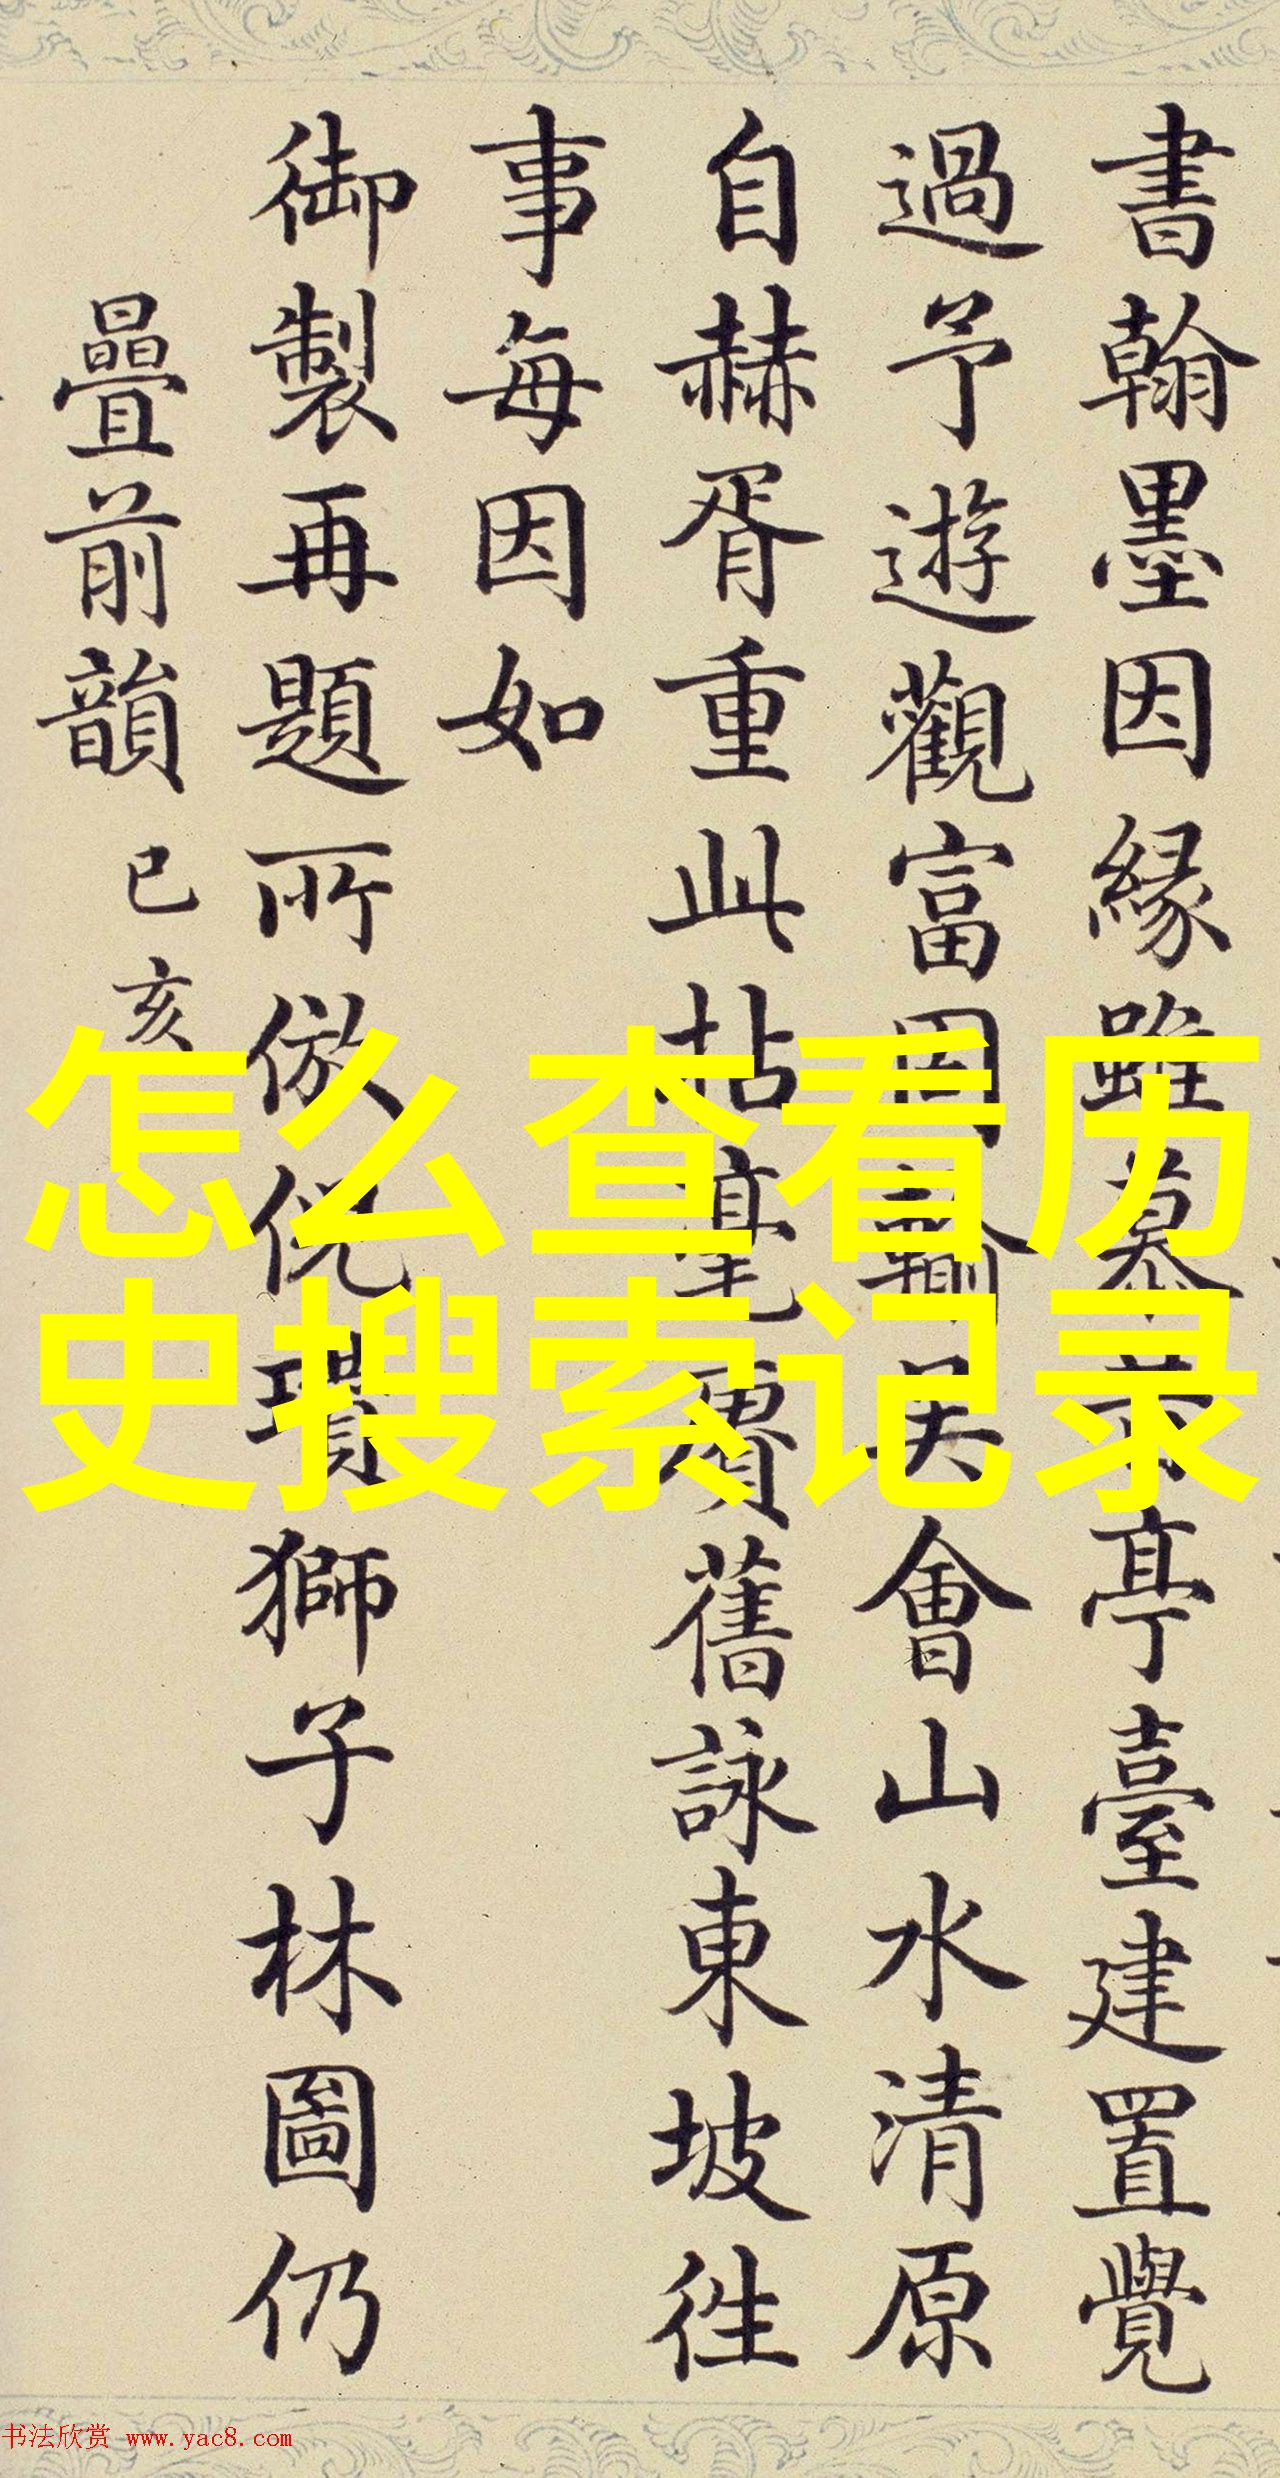 書翰墨因緣雖慕前亭臺建置覺
過予遊觀富因輸吴會山水清原
自赫胥重此拈毫賡舊詠東坡往
事每因如
御製再題所倣倪瓚獅子林圖仍
疊前韻 已亥
怎么查看历
史搜索记录
书法欣赏 www.yac8.com